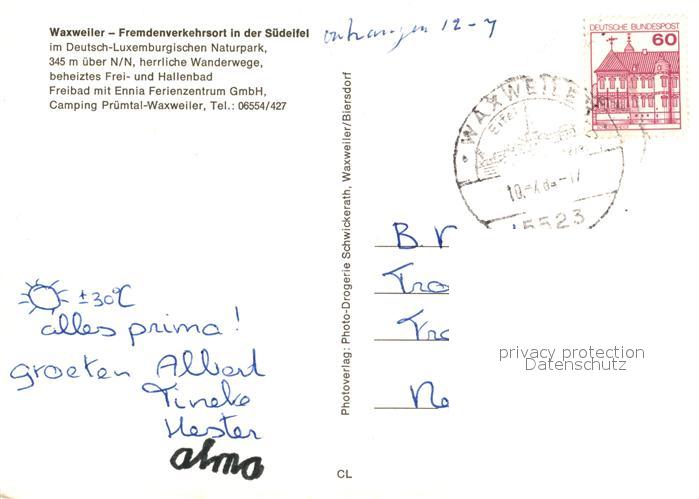 Waxweiler – Fremdenverkehrsort in der Südeifel
im Deutsch-Luxemburgischen Naturpark,
345 m über N/N, herrliche Wanderwege,
beheiztes Frei- und Hallenbad
Freibad mit Ennia Ferienzentrum GmbH,
Camping Prümtal-Waxweiler, Tel.: 06554/427
ontvangen 12-7
DEUTSCHE BUNDESPOST
60
WAXWEILER
Eifel
5523
Photoverlag: Photo-Drogerie Schwickerath, Waxweiler/Biersdorf
B.
Tro
Tro
Ne
privacy protection
Datenschutz
± 30°C
alles prima!
groeten Albert
Tineke
Hester
alma
CL